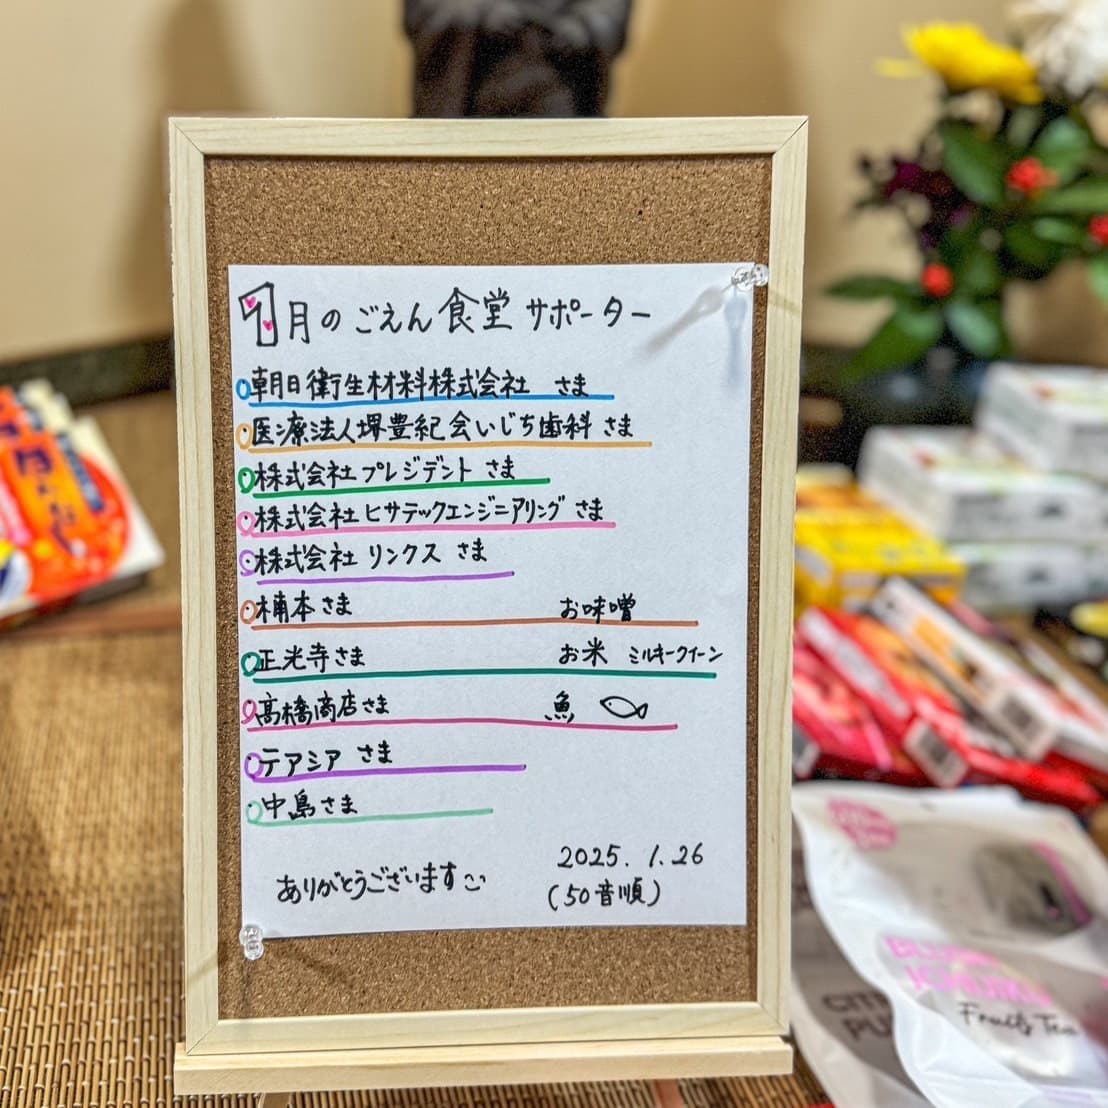 1月のごえん食堂サポーター
朝日衛生材料株式会社 さま
医療法人堺豊紀会いじち歯科 さま
株式会社プレジデント さま
株式会社ヒサテックエンジニアリング さま
株式会社 リンクス さま
楠本さま お味噌
正光寺さま お米 ミルキークイーン
髙橋商店さま 魚
テアシア さま
中島さま
ありがとうございます
2025.1.26
(50音順)
Fruity Tea